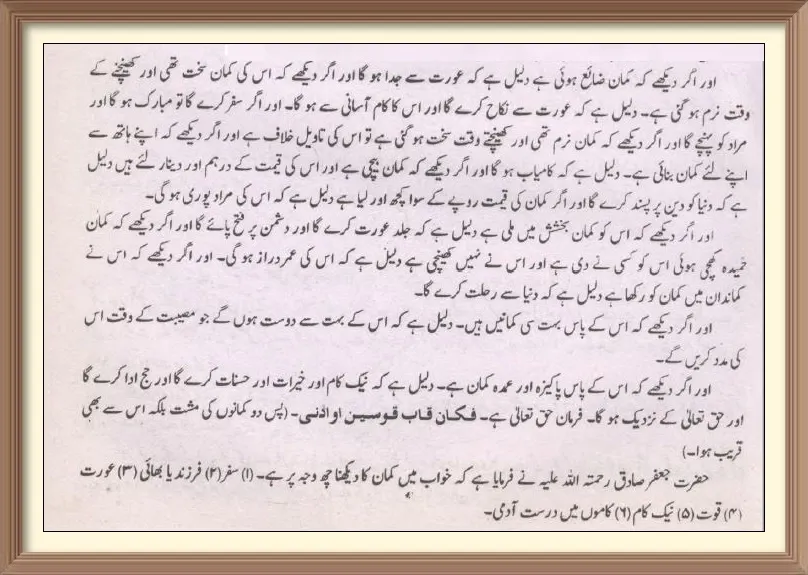 اور اگر دیکھے کہ کمان ضائع ہوئی ہے دلیل ہے کہ عورت سے جدا ہو گا اور اگر دیکھے کہ اس کی کمان سخت تھی اور کھینچنے کے
وقت نرم ہو گئی ہے۔ دلیل ہے کہ عورت سے نکاح کرے گا اور اس کا کام آسانی سے ہو گا۔ اور اگر سفر کرے گا تو مبارک ہو گا اور
مراد کو پہنچے گا اور اگر دیکھے کہ کمان نرم تھی اور کھینچتے وقت سخت ہو گئی ہے تو اس کی تاویل خلاف ہے اور اگر دیکھے کہ اپنے ہاتھ سے
اپنے لئے کمان بنائی ہے۔ دلیل ہے کہ کامیاب ہو گا اور اگر دیکھے کہ کمان بیچی ہے اور اس کی قیمت کے درہم اور دینار لئے ہیں دلیل
ہے کہ دنیا کو دین پر پسند کرے گا اور اگر کمان کی قیمت روپے کے سوا کچھ اور لیا ہے دلیل ہے کہ اس کی مراد پوری ہو گی۔
اور اگر دیکھے کہ اس کو کمان بخشش میں ملی ہے دلیل ہے کہ جلد عورت کرے گا اور دشمن پر فتح پائے گا اور اگر دیکھے کہ کمان
خمیدہ کھچی ہوئی اس کو کسی نے دی ہے اور اس نے نہیں کھینچی ہے دلیل ہے کہ اس کی عمر دراز ہو گی۔ اور اگر دیکھے کہ اس نے
کماندان میں کمان کو رکھا ہے دلیل ہے کہ دنیا سے رحلت کرے گا۔
اور اگر دیکھے کہ اس کے پاس بہت سی کمانیں ہیں۔ دلیل ہے کہ اس کے بہت سے دوست ہوں گے جو مصیبت کے وقت اس
کی مدد کریں گے۔
اور اگر دیکھے کہ اس کے پاس پاکیزہ اور عمدہ کمان ہے۔ دلیل ہے کہ نیک کام اور خیرات اور حسنات کرے گا اور حج ادا کرے گا
اور حق تعالیٰ کے نزدیک ہو گا۔ فرمان حق تعالیٰ ہے۔ فکان قاب قوسین او ادنی۔ (پس دو کمانوں کی مشت بلکہ اس سے بھی
قریب ہوا۔)
حضرت جعفر صادق رحمتہ اللہ علیہ نے فرمایا ہے کہ خواب میں کمان کا دیکھنا چھ وجہ پر ہے۔ (۱) سفر (۲) فرزند یا بھائی (۳) عورت
(۴) قوت (۵) نیک کام (۶) کاموں میں درست آدمی۔